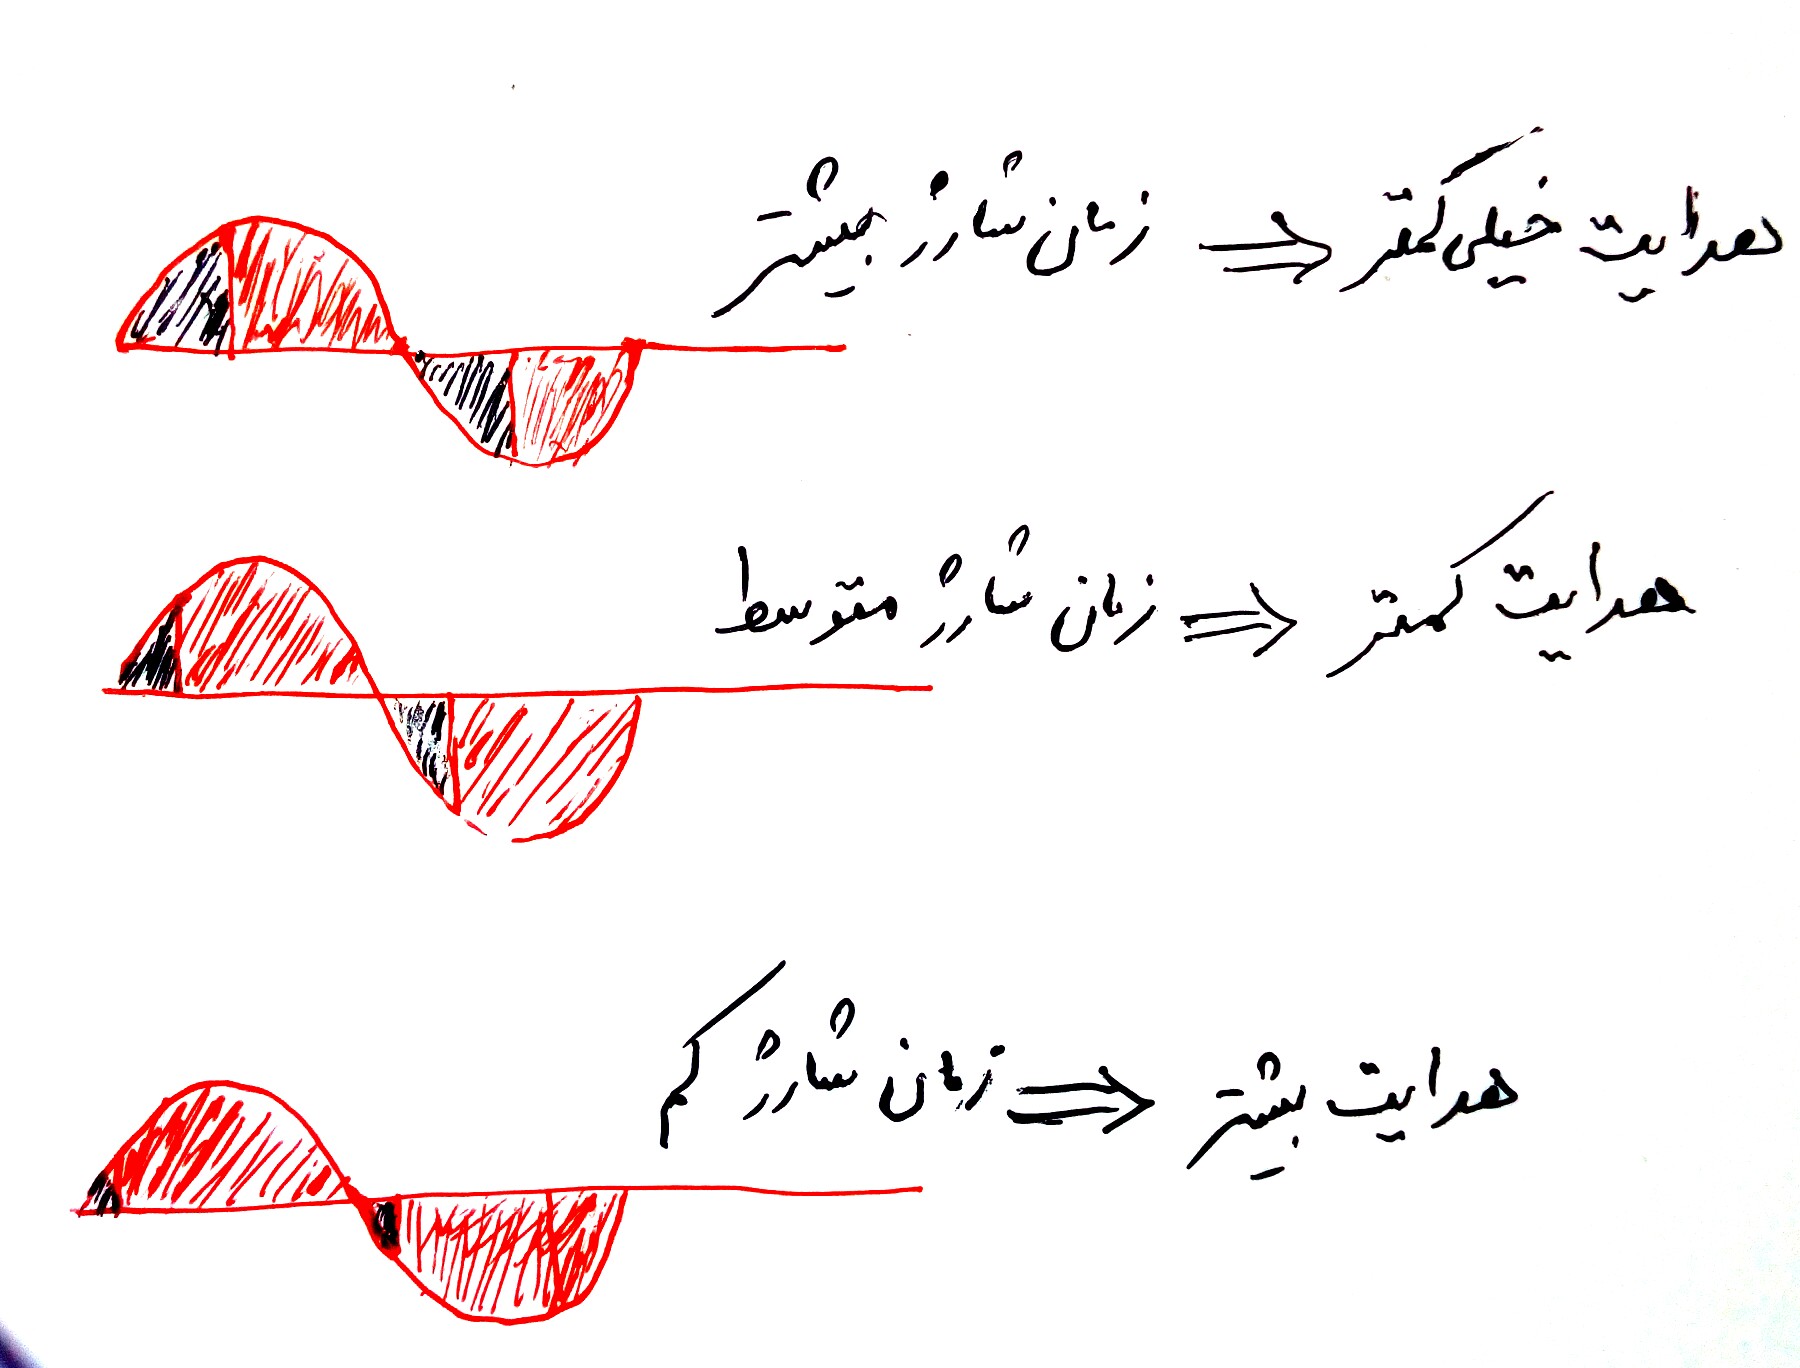 هدایت خیلی کمتر ⇒ زمان شارژ بیشتر
هدایت کمتر ⇒ زمان شارژ متوسط
هدایت بیشتر ⇒ زمان شارژ کم